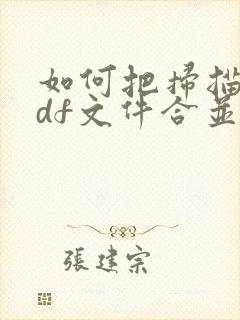 如何把掃描
df文件合並
張建宗